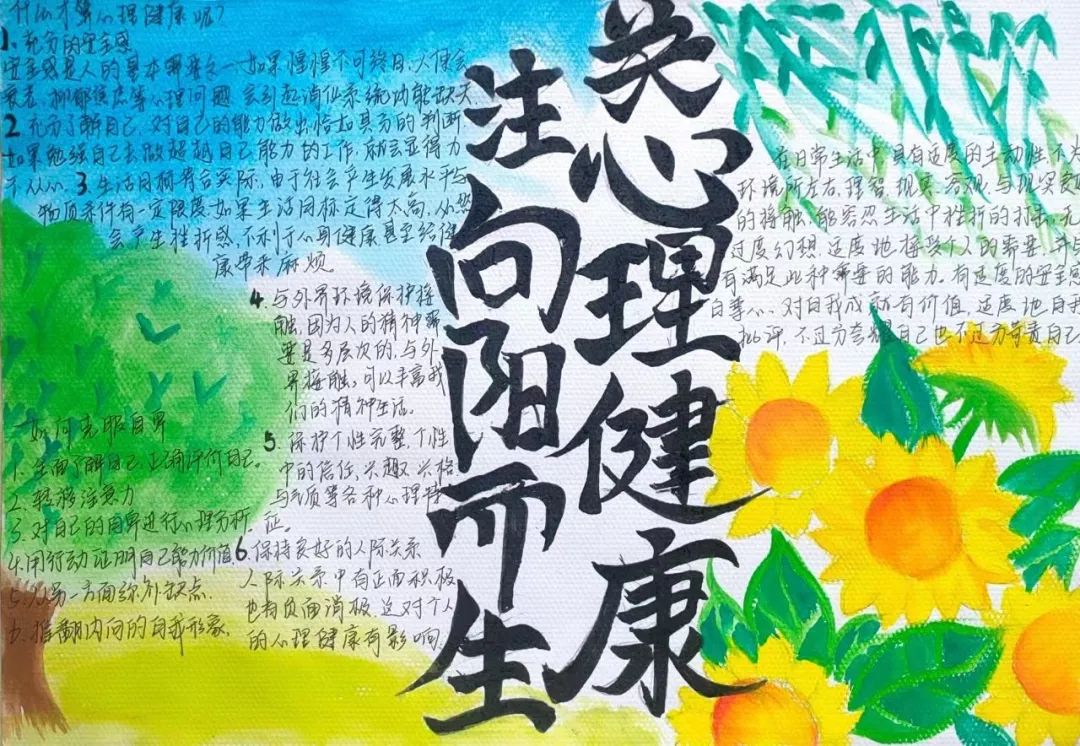 什么才算心理健康呢?
1、充分的安全感
安全感是人的基本需要之一如果惶惶不可终日,人便会
衰老,抑郁焦虑等心理问题会引起消化系统功能缺失
2 充分了解自己,对自己的能力做出恰如其分的判断.
如果勉强自己去做超越自己能力的工作,就会显得力
不从心. 3.生活目标符合实际,由于社会产生发展水平与
物质条件有一定限度,如果生活目标定得太高,必然
会产生挫折感,不利于心身健康甚至给健
康带来麻烦.
4、与外界环境保护接
触,因为人的精神需
要是多层次的,与外
界接触,可以丰富我
们的精神生活。
5、保护个性完整,个性
中的信任,兴趣
与气质等各种心理特
征。
6.保持良好的人际关系
人际关系中有正面积极
也有负面消极,这对个人
的心理健康有影响
如何克服自卑
1、全面了解自己,正确评价自己。
2.转移注意力
3、对自己的自卑进行心理分析.
4.用行动证明自己能力价值
5、从另一方面弥补缺点.
六.推翻内向的自我形象.
关
注
心理健康
向阳而生
在日常生活中,具有适度的主动性,不为
环境所左右,理智,现实,客观,与现实
的接触,能容忍生活中挫折的打击,无
过度幻想,适度地接受个人的需要,并
有满足此种需要的能力.有适度的安全感
自尊心、对自我成就有价值.适度地自我
批评,不过分夸耀自己也不过分苛责自己